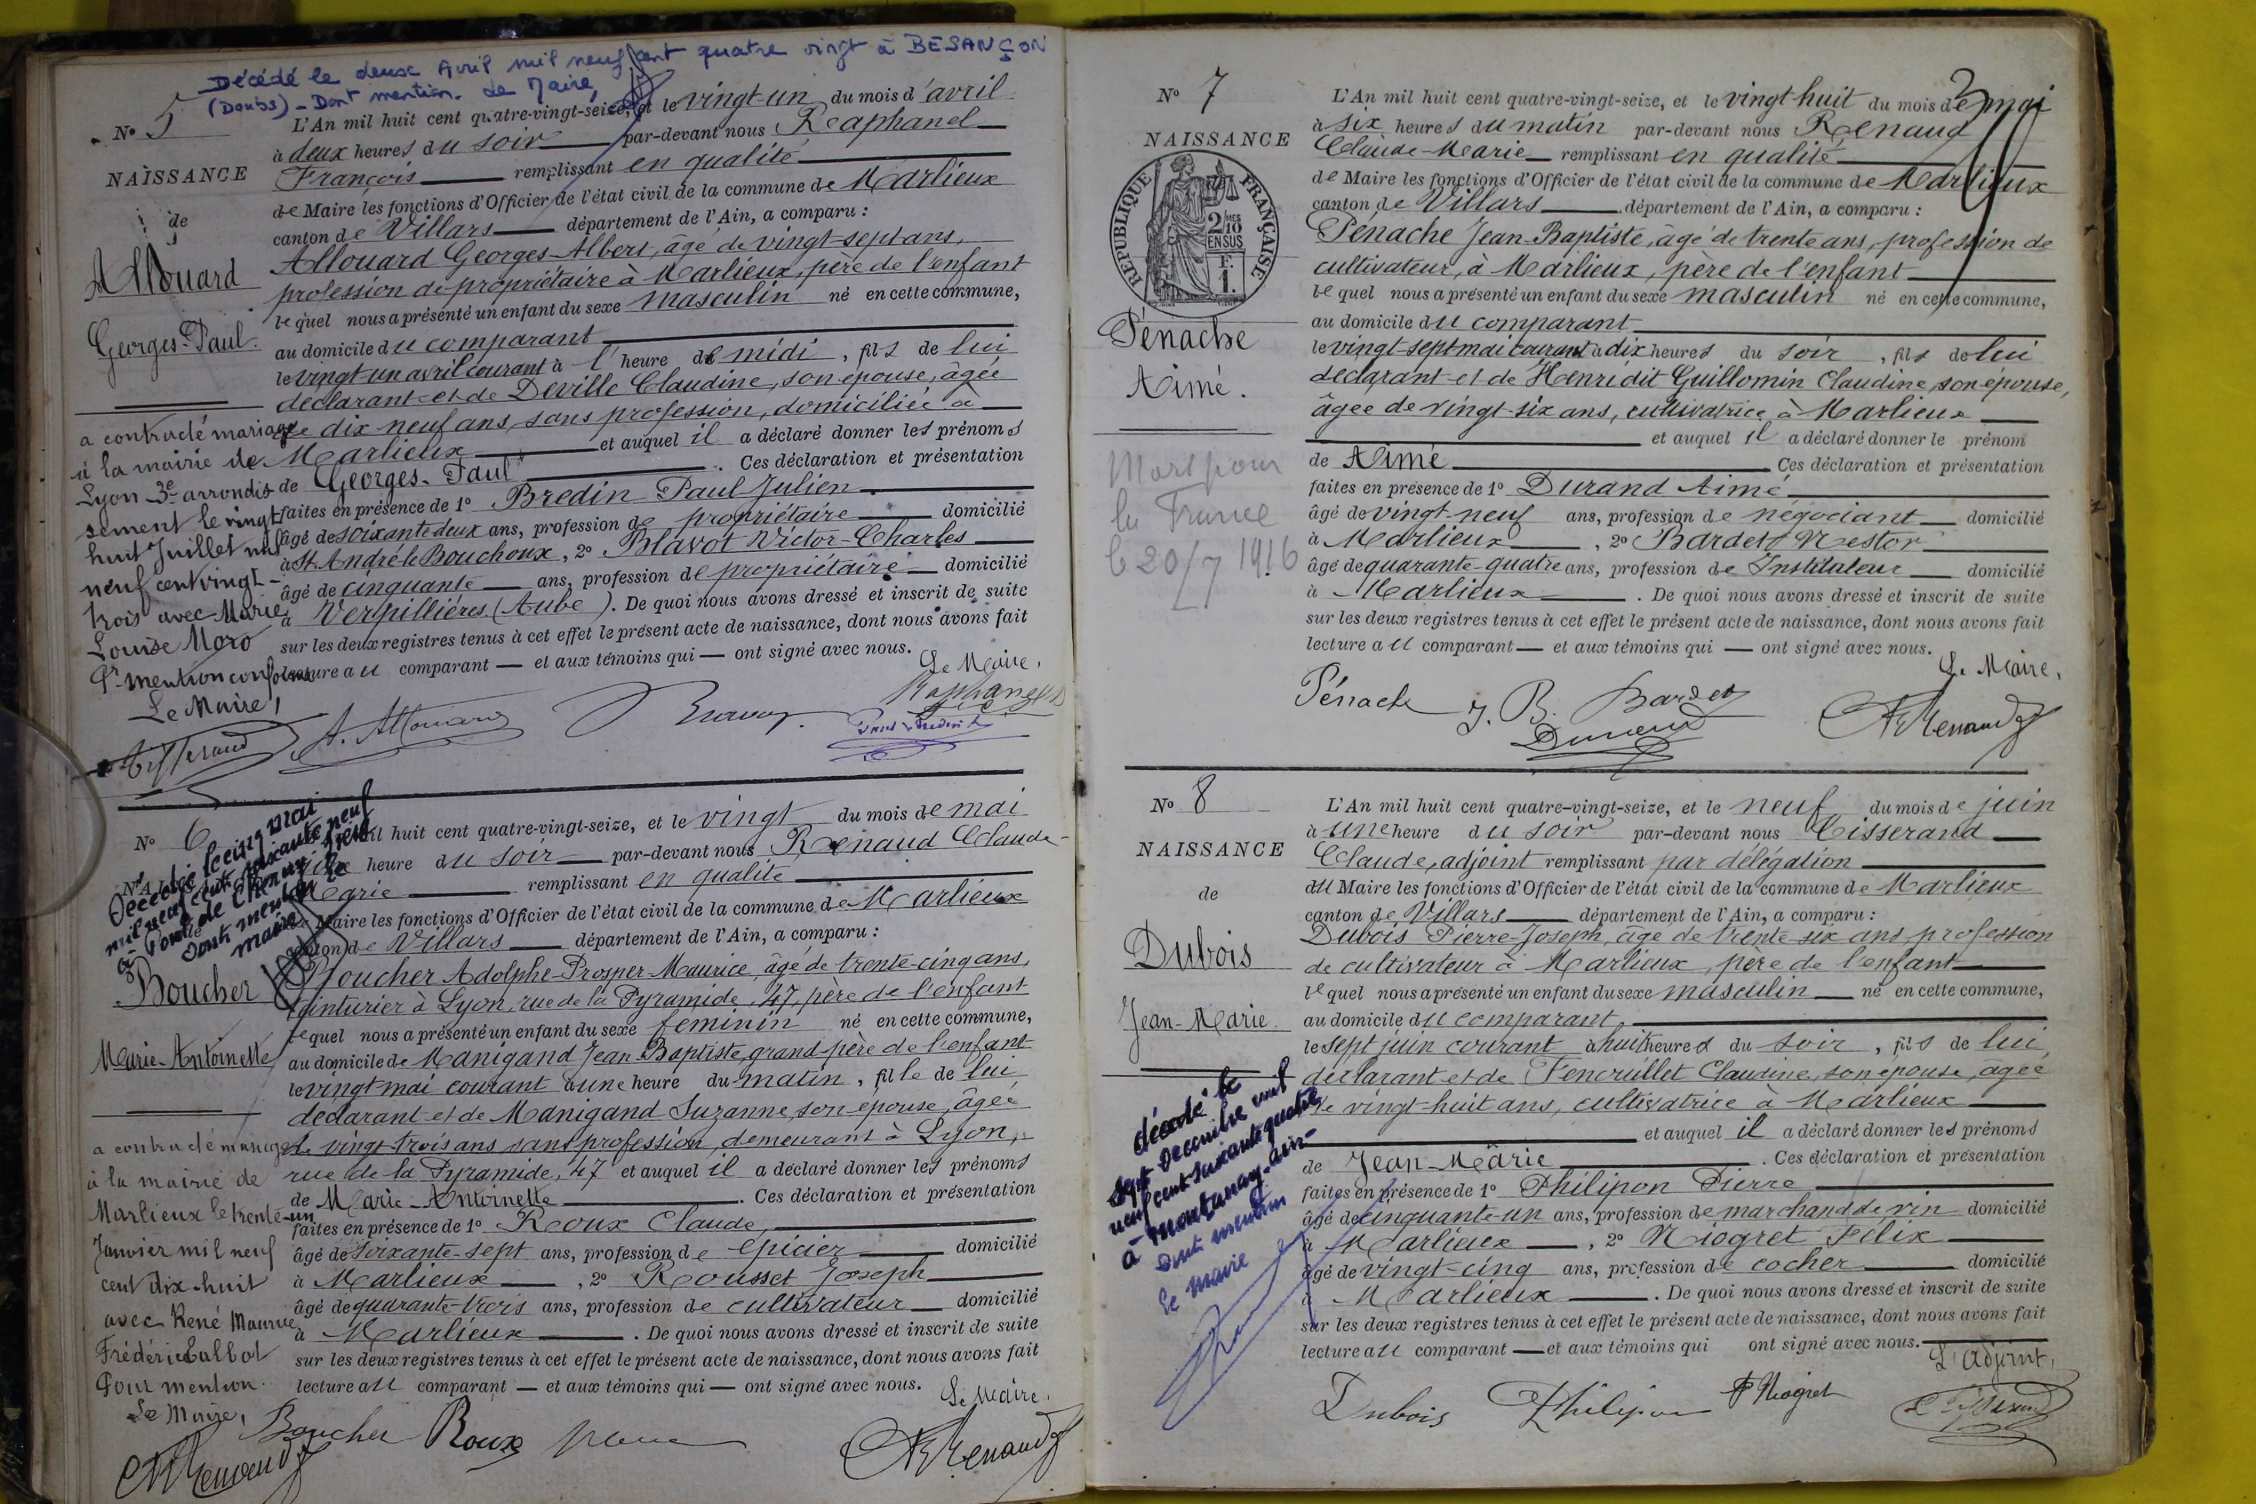 Décédé le deux Avril mil neuf cent quatre vingt à BESANÇON
(Doubs) - Dont mention. Le Maire,
N° 5
NAISSANCE
de
Allouard
Georges-Paul.
a contracté mariage
à la mairie de
Lyon 3e arrondis
sement le vingt
huit Juillet mil
neuf cent vingt-
trois avec Marie
Louise Moro
Pr mention conforme
Le Maire,
L'An mil huit cent quatre-vingt-seize, et le vingt-un du mois d'avril
à deux heures du soir par-devant nous Raphanel
François remplissant en qualité
de Maire les fonctions d'Officier de l'état civil de la commune de Marlieux
canton de Villars département de l'Ain, a comparu :
Allouard Georges-Albert, âgé de vingt-sept ans,
profession de propriétaire à Marlieux, père de l'enfant
lequel nous a présenté un enfant du sexe masculin né en cette commune,
au domicile du comparant
le vingt-un avril courant à l'heure de midi, fils de lui
déclarant et de Deville Claudine, son épouse, âgée
de dix neuf ans, sans profession, domiciliée à
Marlieux et auquel il a déclaré donner les prénoms
de Georges-Paul. Ces déclaration et présentation
faites en présence de 1° Bredin Paul Julien
âgé de soixante deux ans, profession de propriétaire domicilié
à St André le Bouchoux, 2° Blavot Victor-Charles
âgé de cinquante ans, profession de propriétaire domicilié
à Verpillières (Aube). De quoi nous avons dressé et inscrit de suite
sur les deux registres tenus à cet effet le présent acte de naissance, dont nous avons fait
lecture au comparant — et aux témoins qui — ont signé avec nous.
Le Maire,
A. Allouard
Raphanel
N° 6
Décédée le cinq mai
mil neuf cent soixante neuf
à
dont mention le
maire
Boucher
Marie-Antoinette
a contracté mariage
à la mairie de
Marlieux le trente-un
Janvier mil neuf
cent dix-huit
avec René Maurice
Frédéric
Pour mention.
Le Maire,
mil huit cent quatre-vingt-seize, et le vingt du mois de mai
heure du soir par-devant nous Renaud Claude-
Marie remplissant en qualité
de Maire les fonctions d'Officier de l'état civil de la commune de Marlieux
canton de Villars département de l'Ain, a comparu :
Boucher Adolphe-Prosper-Maurice, âgé de trente-cinq ans,
teinturier à Lyon, rue de la Pyramide, 47, père de l'enfant
lequel nous a présenté un enfant du sexe féminin né en cette commune,
au domicile de Manigand Jean-Baptiste, grand père de l'enfant
le vingt mai courant à une heure du matin, fille de lui
déclarant et de Manigand Suzanne, son épouse, âgée
de vingt-trois ans sans profession, demeurant à Lyon,
rue de la Pyramide, 47 et auquel il a déclaré donner les prénoms
de Marie-Antoinette. Ces déclaration et présentation
faites en présence de 1° Roux Claude,
âgé de soixante-sept ans, profession de épicier domicilié
à Marlieux, 2° Rousset Joseph
âgé de quarante-trois ans, profession de cultivateur domicilié
à Marlieux. De quoi nous avons dressé et inscrit de suite
sur les deux registres tenus à cet effet le présent acte de naissance, dont nous avons fait
lecture au comparant — et aux témoins qui — ont signé avec nous.
Le Maire.
Boucher Roux
Renaud
N° 7
NAISSANCE
RÉPUBLIQUE FRANÇAISE
2/10 EN SUS
F. 1.
Pénache
Aimé.
Mort pour
la France
le 20/7 1916
L'An mil huit cent quatre-vingt-seize, et le vingt-huit du mois de mai
à six heures du matin par-devant nous Renaud
Claude-Marie remplissant en qualité
de Maire les fonctions d'Officier de l'état civil de la commune de Marlieux
canton de Villars département de l'Ain, a comparu :
Pénache Jean-Baptiste, âgé de trente ans, profession de
cultivateur, à Marlieux, père de l'enfant
lequel nous a présenté un enfant du sexe masculin né en cette commune,
au domicile du comparant
le vingt-sept mai courant à dix heures du soir, fils de lui
déclarant et de Henri dit Guillomin Claudine, son épouse,
âgée de vingt-six ans, cultivatrice à Marlieux
et auquel il a déclaré donner le prénom
de Aimé Ces déclaration et présentation
faites en présence de 1° Durand Aimé
âgé de vingt-neuf ans, profession de négociant domicilié
à Marlieux, 2° Bardet Nestor
âgé de quarante-quatre ans, profession de Instituteur domicilié
à Marlieux. De quoi nous avons dressé et inscrit de suite
sur les deux registres tenus à cet effet le présent acte de naissance, dont nous avons fait
lecture au comparant — et aux témoins qui — ont signé avec nous.
Le Maire,
Pénache J. B. Bardet
Durand
Renaud
N° 8
NAISSANCE
de
Dubois
Jean-Marie
décédé le
sept décembre mil
neuf cent soixante quatre
à Montanay-Ain-
dont mention
le maire
L'An mil huit cent quatre-vingt-seize, et le neuf du mois de juin
à une heure du soir par-devant nous Tisserand
Claude, adjoint remplissant par délégation
du Maire les fonctions d'Officier de l'état civil de la commune de Marlieux
canton de Villars département de l'Ain, a comparu :
Dubois Pierre-Joseph, âgé de trente-six ans profession
de cultivateur à Marlieux, père de l'enfant
lequel nous a présenté un enfant du sexe masculin né en cette commune,
au domicile du comparant,
le sept juin courant à huit heures du soir, fils de lui,
déclarant et de Claudine, son épouse, âgée
de vingt-huit ans, cultivatrice à Marlieux
et auquel il a déclaré donner les prénoms
de Jean-Marie. Ces déclaration et présentation
faites en présence de 1° Philipon Pierre
âgé de cinquante-un ans, profession de marchand de vin domicilié
à Marlieux, 2° Niogret Félix
âgé de vingt-cinq ans, profession de cocher domicilié
à Marlieux. De quoi nous avons dressé et inscrit de suite
sur les deux registres tenus à cet effet le présent acte de naissance, dont nous avons fait
lecture au comparant — et aux témoins qui ont signé avec nous.
L'adjoint,
Dubois Philipon F Niogret